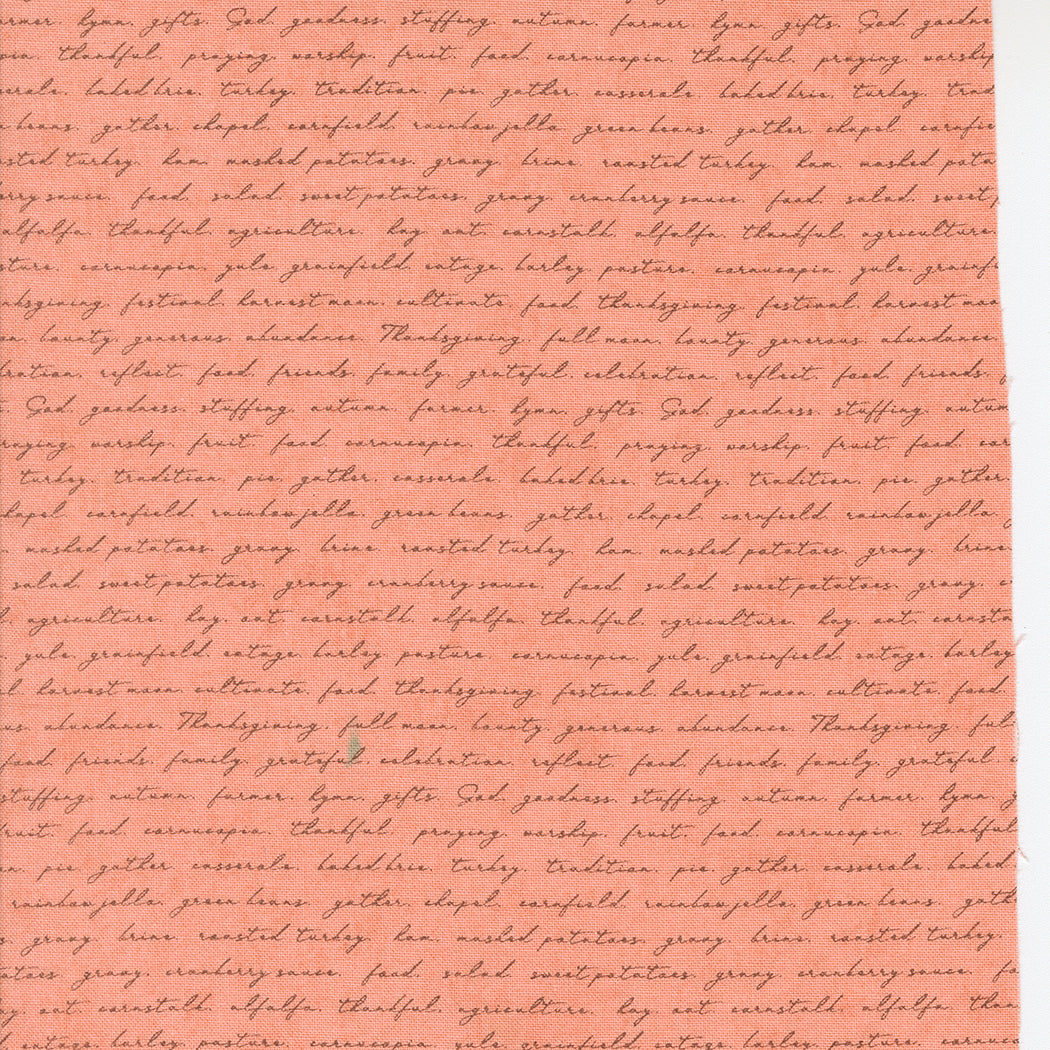 farmer. hymn. gifts. God. goodness. stuffing. autumn. farmer. hymn. gifts. God. goodne
thankful. praying. worship. fruit. food. cornucopia. thankful. praying. worship
serole. baked brie. turkey. tradition. pie. gather. casserole. baked brie. turkey. trad
n beans. gather. chapel. cornfield. rainbow jello. green beans. gather. chapel. cornfie
sted turkey. ham. mashed potatoes. gravy. brine. roasted turkey. ham. mashed pota
rry sauce. food. salad. sweet potatoes. gravy. cranberry sauce. food. salad. sweet
alfalfa. thankful. agriculture. hay. oat. cornstalk. alfalfa. thankful. agriculture.
sture. cornucopia. yule. grainfield. eatage. barley. pasture. cornucopia. yule. grainfi
nksgiving. festival. harvest moon. cultivate. food. thanksgiving. festival. harvest moo
on. bounty. generous. abundance. Thanksgiving. full moon. bounty. generous. abundance.
bration. reflect. food. friends. family. grateful. celebration. reflect. food. friends.
God. goodness. stuffing. autumn. farmer. hymn. gifts. God. goodness. stuffing. autum
raying. worship. fruit. food. cornucopia. thankful. praying. worship. fruit. food. cor
turkey. tradition. pie. gather. casserole. baked brie. turkey. tradition. pie. gather.
hapel. cornfield. rainbow jello. green beans. gather. chapel. cornfield. rainbow jello.
mashed potatoes. gravy. brine. roasted turkey. ham. mashed potatoes. gravy. brine.
salad. sweet potatoes. gravy. cranberry sauce. food. salad. sweet potatoes. gravy. c
l. agriculture. hay. oat. cornstalk. alfalfa. thankful. agriculture. hay. oat. cornsta
yule. grainfield. eatage. barley. pasture. cornucopia. yule. grainfield. eatage. barley
l. harvest moon. cultivate. food. thanksgiving. festival. harvest moon. cultivate. food.
us. abundance. Thanksgiving. full moon. bounty. generous. abundance. Thanksgiving. full
food. friends. family. grateful. celebration. reflect. food. friends. family. grateful. c
stuffing. autumn. farmer. hymn. gifts. God. goodness. stuffing. autumn. farmer. hymn. g
ruit. food. cornucopia. thankful. praying. worship. fruit. food. cornucopia. thankful
n. pie. gather. casserole. baked brie. turkey. tradition. pie. gather. casserole. baked
rainbow jello. green beans. gather. chapel. cornfield. rainbow jello. green beans. gath
s. gravy. brine. roasted turkey. ham. mashed potatoes. gravy. brine. roasted turkey.
atoes. gravy. cranberry sauce. food. salad. sweet potatoes. gravy. cranberry sauce. fo
ay. oat. cornstalk. alfalfa. thankful. agriculture. hay. oat. cornstalk. alfalfa. than
d. eatage. barley. pasture. cornucopia. yule. grainfield. eatage. barley. pasture. cornuco